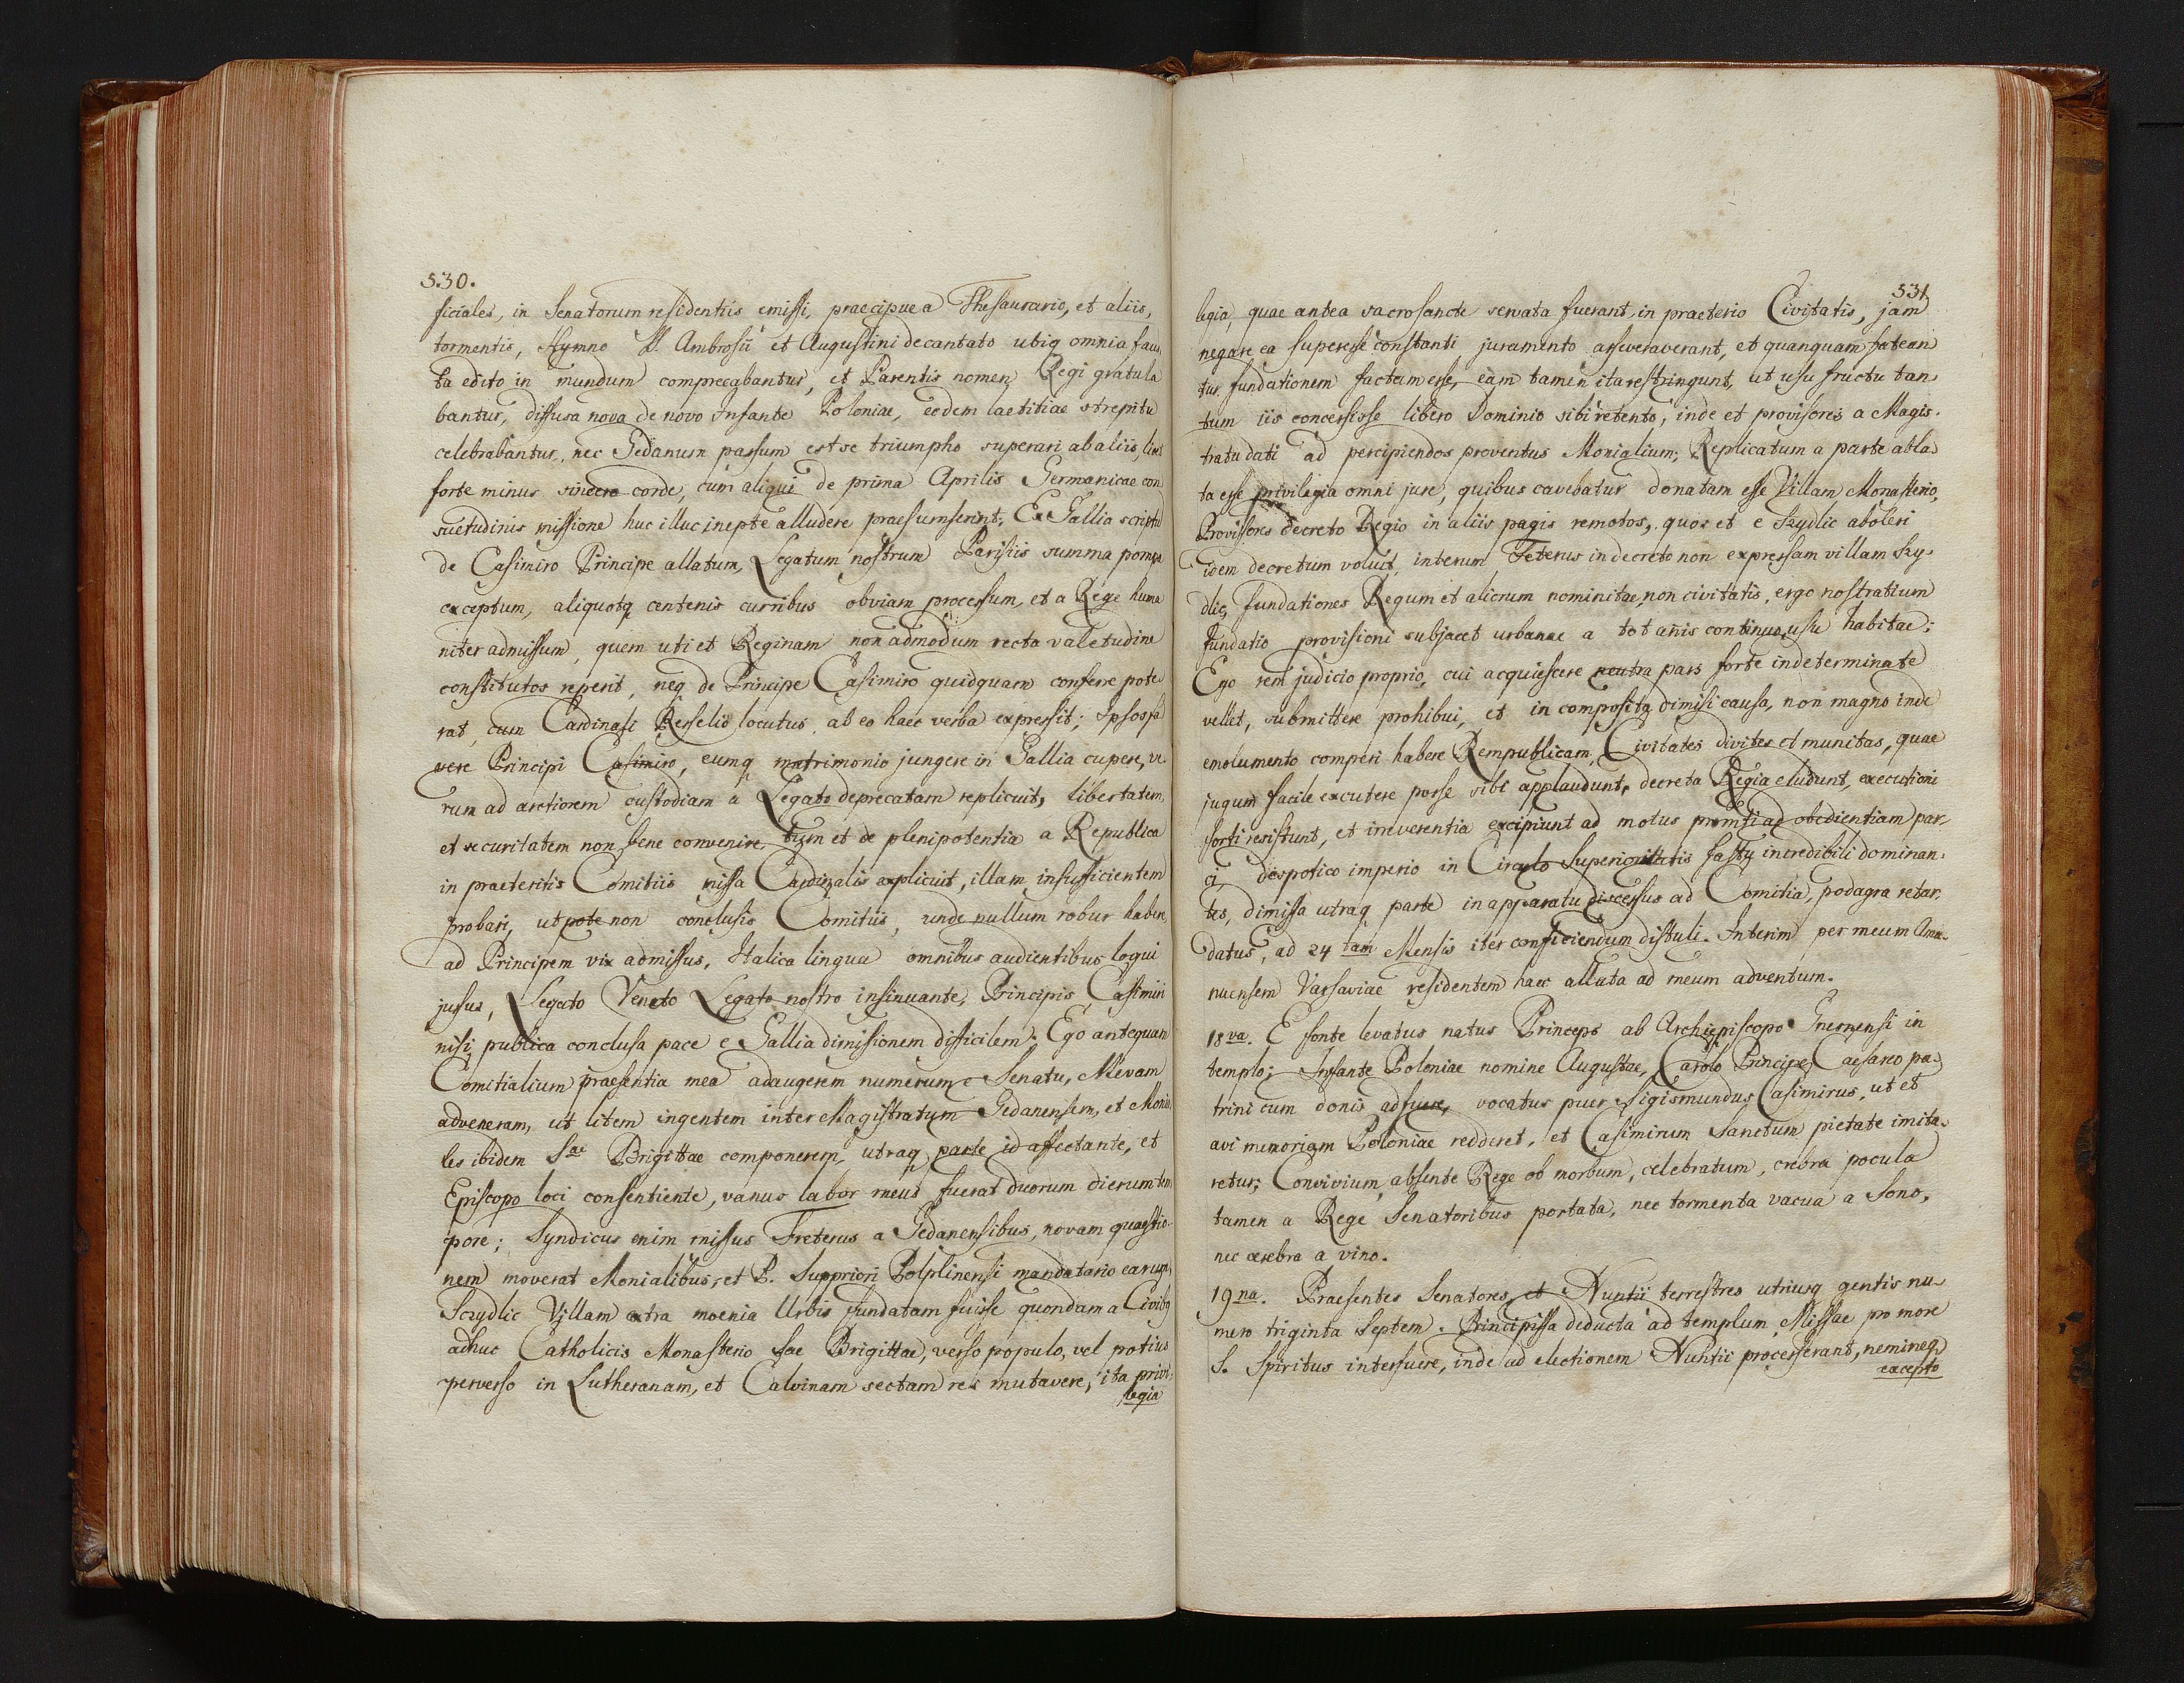 530.
ficiales, in Senatorum residentiis emissi, praecipue a Thesaurario, et aliis,
tormentis, Hymno SS. Ambrosii et Augustini decantato ubiq omnia faus
ta edito in mundum comprecabantur, et Parentis nomen Regi gratula
bantur, diffusa nova de novo Infante Poloniae, eodem laetitiae strepitu
celebrabantur, nec Gedanum passum est se triumpho superari ab aliis, licet
forte minus sincero corde, cum aliqui de prima Aprilis Germanicae con
suetudinis missione huc illuc inepte alludere praesumserint. Ex Gallia scriptu
de Casimiro Principe allatum, Legatum nostrum Parisiis summa pompa
exceptum, aliquotq centenis curribus obviam processum, et a Rege huma
niter admissum, quem uti et Reginam non admodum recta valetudine
constitutos reperit, neq de Principe Casimiro quidquam conferre pote
rat, cum Cardinali Resselio locutus, ab eo haec verba expressit; Ipsos fa
vere Principi Casimiro, eumq matrimonio jungere in Gallia cupere, ve
rum ad arctiorem custodiam a Legato deprecatam replicuit, libertatem,
et securitatem non bene convenire, tum et de plenipotentia a Republica
in praeteritis Comitiis missa Cardinalis explicuit, illam insufficientem
probari, utpote non conclusis Comitiis, unde nullum robur habere,
ad Principem vix admissus, Italica lingua omnibus audientibus loqui
jussus, Legato Veneto Legato nostro insinuante, Principis Casimiri
nisi publica conclusa pace e Gallia dimissionem difficilem. Ego antequam
Comitialium praesentia mea adaugerem numerum e Senatu, Mevam
adveneram, ut litem ingentem inter Magistratum Gedanensem, et Monia
les ibidem Sae Brigittae componerem, utraq parte id affectante, et
Episcopo loci consentiente, vanus labor meus fuerat duorum dierum tem
pore; Syndicus enim missus Freterus a Gedanensibus, novam quaestio
nem moverat Monialibus, et P. Suppriori Polplinensi mandatario earum,
Sczydlic Villam extra moenia Urbis fundatam fuisse quondam a Civibq
adhuc Catholicis Monasterio Sae Brigittae, verso populo, vel potius
perverso in Lutheranam, et Calvinam sectam res mutavere, ita privi
legia
531
legia, quae antea sacrosancte servata fuerant, in praeterio Civitatis, jam
negare ea superesse constanti juramento asseveraverant, et quanquam fatean
tur fundationem factam esse, eam tamen ita restringunt, ut usu fructu tan
tum iis concessisse libero Dominio sibi retento, inde et provisores a Magis
tratu dati ad percipiendos proventus Monialium; Replicatum a parte abla
ta esse privilegia omni jure, quibus cavebatur donatam esse Villam Monasterio,
Provisores decreto Regio in aliis pagis remotos, quos et e Szydlic aboleri
idem decretum voluit, interum Feterus in decreto non expressam villam Szy
dlic, fundationes Regum et aliorum nominitae, non civitatis, ergo nostratium
fundatio provisioni subjacet urbanae a tot anis continuo usu habitae;
Ego rem judicio proprio, cui acquiescere neutra pars forte indeterminate
vellet, submittere prohibui, et in composita dimisi causa, non magno inde
emolumento comperi habere Rempublicam, Civitates divites et munitas, quae
jugum facile excutere posse sibi applaudunt, decreta Regia eludunt, executioni
forti resistunt, et irreverentia excipiunt ad motus promti ad obedientiam par
ci, despotico imperio in Circulo Superioritatis fastu incredibili dominan
tes, dimissa utraq parte in apparatu discessus ad Comitia, podagra retar
datus, ad 24 tam Mensis iter conficiendum distuli. Interim per meum Ama
nuensem Varsaviae residentem haec allata ad meum adventum.
18 va. E fonte levatus natus Princeps ab Archiepiscopo Gnesnensi in
templo; Infante Poloniae nomine Augustae, Carolo Principe Caesareo pa
trini cum donis adfuere, vocatus puer Sigismundus Casimirus, ut et
avi memoriam Poloniae redderet, et Casimirum Sanctum pietate imita
retur; Convivium absente Rege ob morbum, celebratum, crebra pocula
tamen a Rege Senatoribus portata, nec tormenta vacua a Sono,
nec cerebra a vino.
19 na. Praesentes Senatores, et Nuntii terrestres utriusq gentis nu
mero triginta septem. Principissa deducta ad templum, Missae pro more
S. Spiritus interfuere, inde ad electionem Nuntii processerant, nemineq
excepto